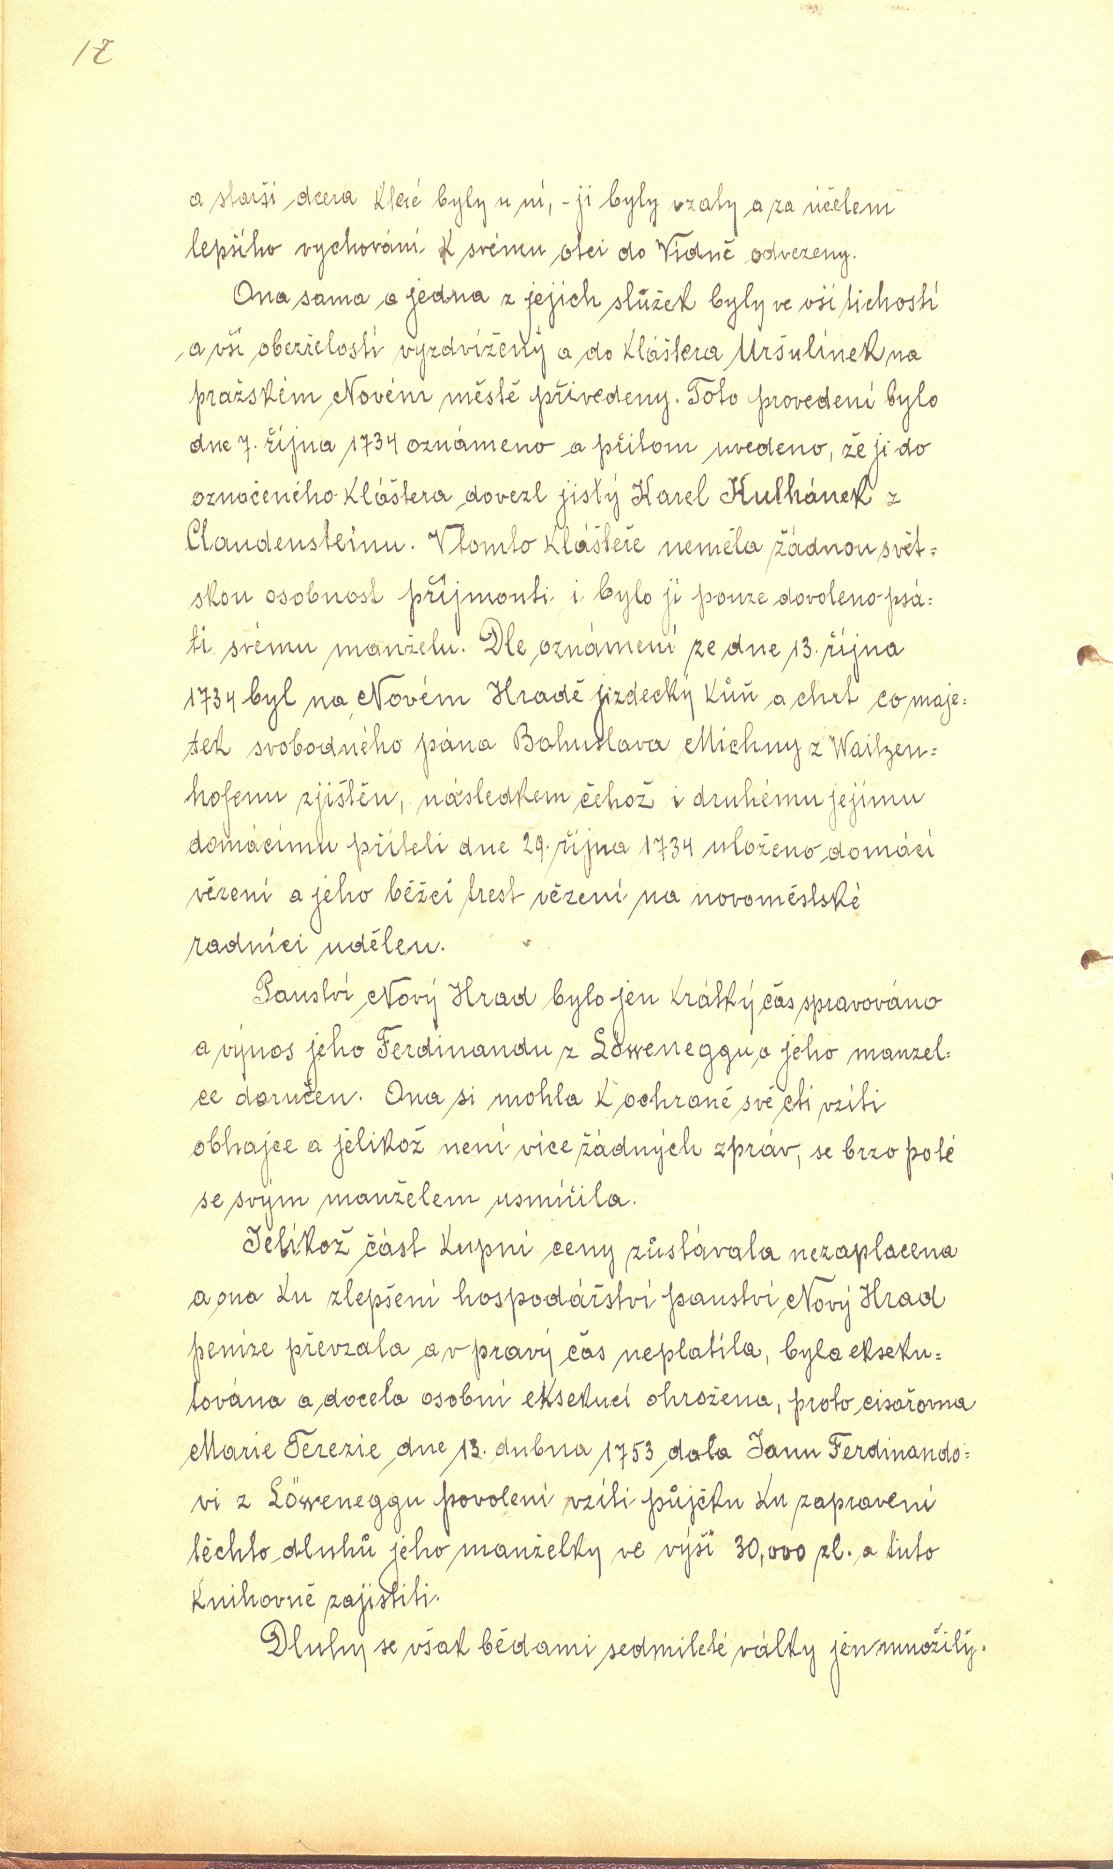 17
a starší dcera které byly u ní, - ji byly vzaty a za účelem
lepšího vychování k svému otci do Vídně odvezeny.
Ona sama a jedna z jejich služek byly ve vší tichosti
a vší obezřelosti vyzdviženy a do kláštera Uršulinek na
pražském Novém městě přivedeny. Toto provedení bylo
dne 7. října 1734 oznámeno a přitom uvedeno, že ji do
označeného kláštera dovezl jistý Karel Kulhánek z
Claudensteinu. V tomto klášteře neměla žádnou svět=
skou osobnost přijmouti i bylo jí pouze dovoleno psá=
ti svému manželu. Dle oznámení ze dne 13. října
1734 byl na Novém Hradě jízdecký kůň a chrt co maje=
tek svobodného pána Bohuslava Michny z Waitzen=
hofenu zjištěn, následkem čehož i druhému jejímu
domácímu příteli dne 29. října 1734 uloženo domácí
vězení a jeho běžci trest vězení na novoměstské
radnici udělen.
Panství Nový Hrad bylo jen krátký čas spravováno
a výnos jeho Ferdinandu z Löweneggu a jeho manžel=
ce doručen. Ona si mohla k ochraně své cti vzíti
obhajce a jelikož není více žádných zpráv, se brzo poté
se svým manželem usmířila.
Jelikož část kupní ceny zůstávala nezaplacena
a ona ku zlepšení hospodářství panství Nový Hrad
peníze převzala a v pravý čas neplatila, byla ekseku=
tována a docela osobní eksekucí ohrožena, proto císařovna
Marie Terezie dne 13. dubna 1753 dala Janu Ferdinando=
vi z Löweneggu povolení vzíti půjčku ku zapravení
těchto dluhů jeho manželky ve výši 30,000 zl. a tuto
knihovně zajistiti.
Dluhy se však bědami sedmileté války jen množily.